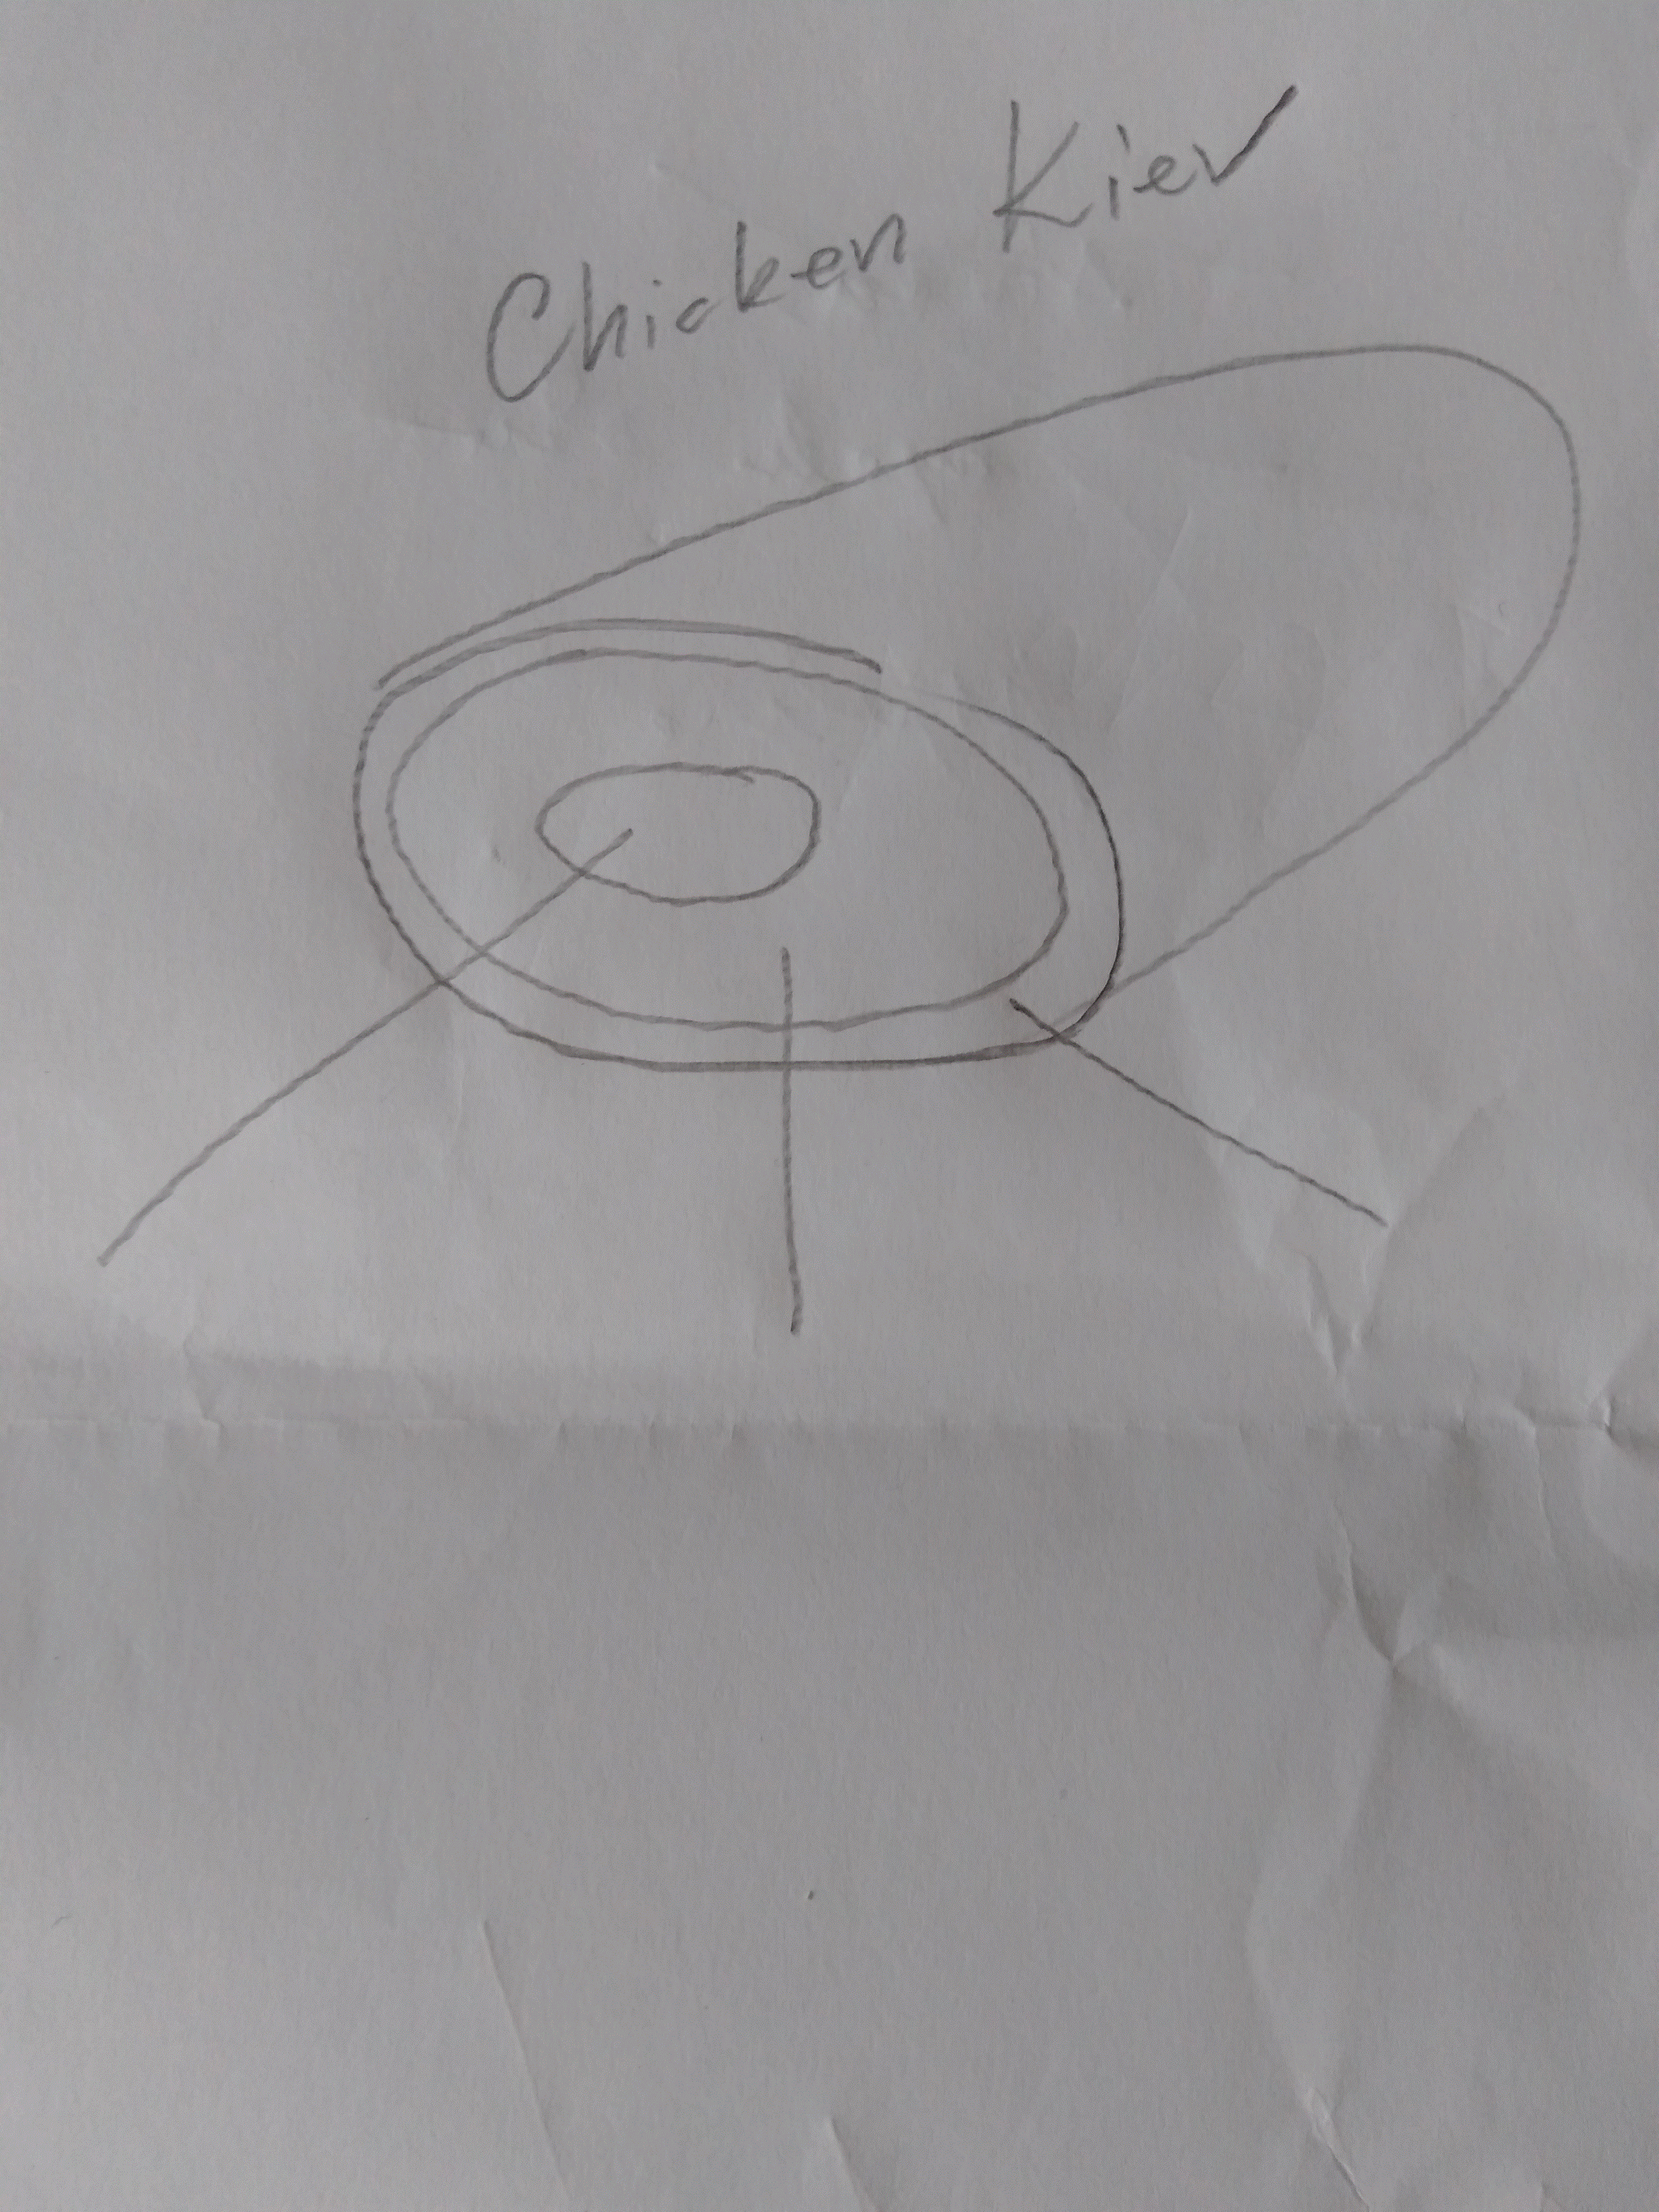 Chicken Kiev